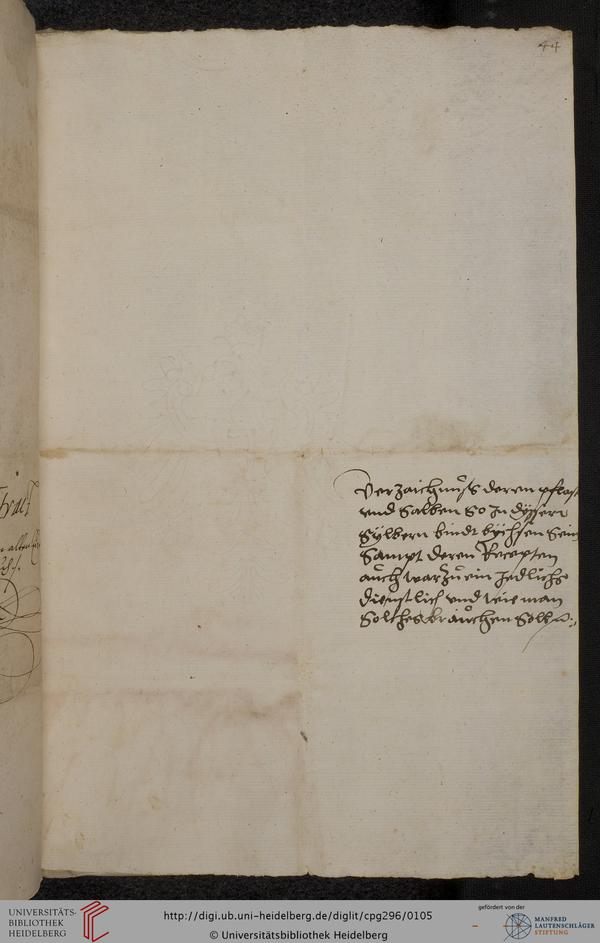 44
Verzaichnuß deren pflast
vnd Salben So In dysem
Sylbern bindt bychsen Sein
Sampt deren Recepten
auch war zu ein Jedlichs
dienstlich vnd wie man
Solches brauchen Soll
UNIVERSITÄTS-
BIBLIOTHEK
HEIDELBERG
http://digi.ub.uni-heidelberg.de/diglit/cpg296/0105
© Universitätsbibliothek Heidelberg
gefördert von der
MANFRED
LAUTENSCHLÄGER
STIFTUNG